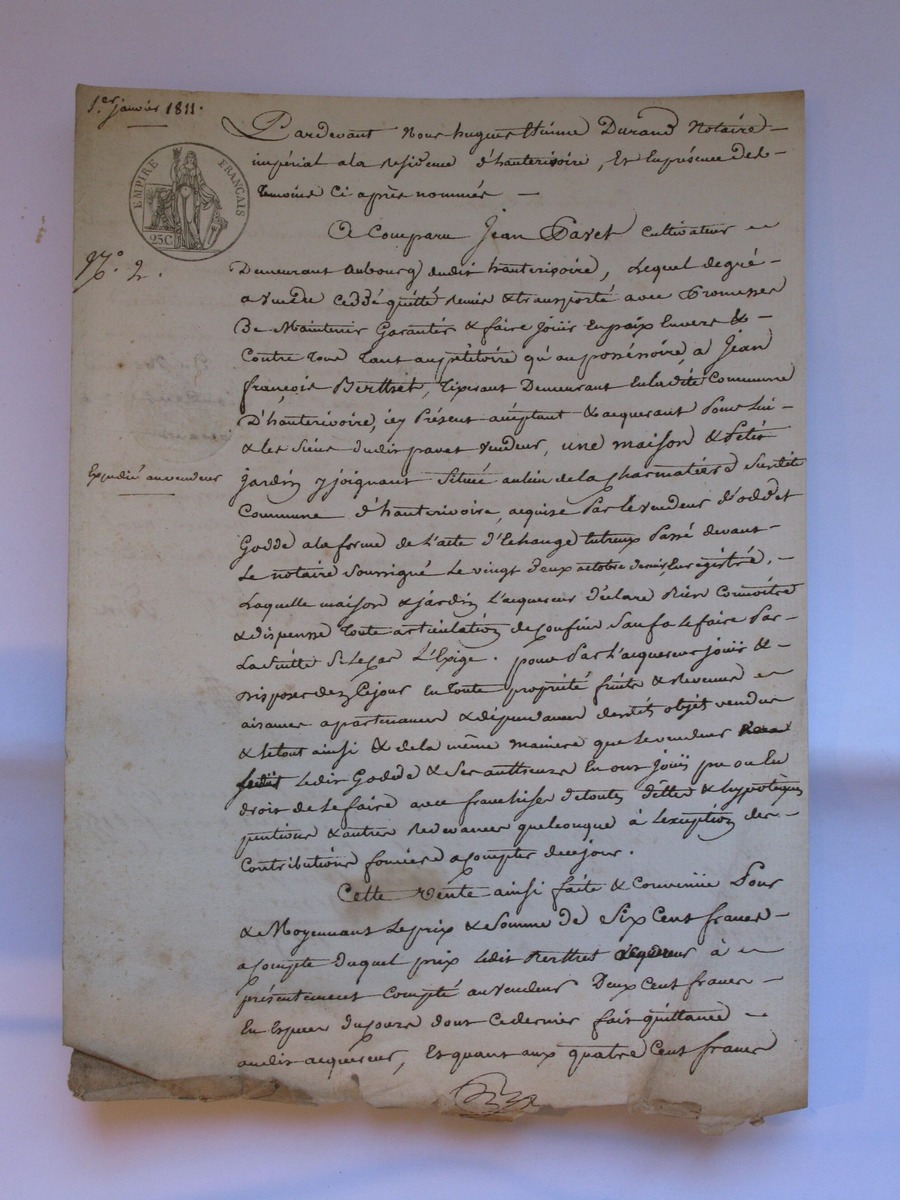 1.er janvier 1811.
EMPIRE FRANÇAIS
25C
N.° 2.
Expedié au vendeur
Pardevant Nous hugues Etienne Durand Notaire
impérial a la residence d'hauterivoire, Et En présence des
temoins Ci après nommés
A Comparu Jean Pavet Cultivateur
Demeurant au bourg dudit hauterivoire, Lequel de gré
a vendu ceddé quitté remis & transporté avec Promesses
De Maintenir Garantir & faire Jouir En paix Envers &
Contre Tous Tant au pétitoire qu'au possessoire, a Jean
françois Berthet, Tixerant Demeurant En ladite Commune
D'hauterivoire, icy Présent acceptant & acquerant Pour Lui
& les Siens dudit pavet vendeur, une maison & Petit
Jardin y joignant Située au lieu de la Charmatière Surdite
Commune d'hauterivoire, acquise Par le vendeur d'odet
Godde a la forme de L'acte d'Echange Entreux Passé devant
Le notaire Soussigné Le vingt deux octobre dernier, Enregistré,
Laquelle maison & jardin L'acquereur déclare Bien Connoitre
& dispense Toute articulation de Confins Sauf a le faire Par
La Suitte Si Le Cas L'Exige. pour Par L'acquereur jouir &
Disposer dez Ce jour En toute propriété fruits & Revenus
aisances apartenances & dépendances desdits objets vendus
& le tout ainsi & de la même maniere que Le vendeur
Ledit Godde & Ses autheurs En ont joui pu ou Eu
droit de Le faire avec franchise de toutes dettes & hypoteques
pentions & autres Redevances quelconque à L'exception des
Contributions foncières a Compter de ce jour.
Cette Vente ainsi faite & Convenüe Pour
& Moyennant Le prix & Somme de Six Cent francs
a Compte duquel prix Ledit Berthet acquereur à
présentement Compté au vendeur Deux Cent francs
En Espèces du Cours dont Ce dernier fait quittance
audit acquereur, Et quant aux quatre Cent francs